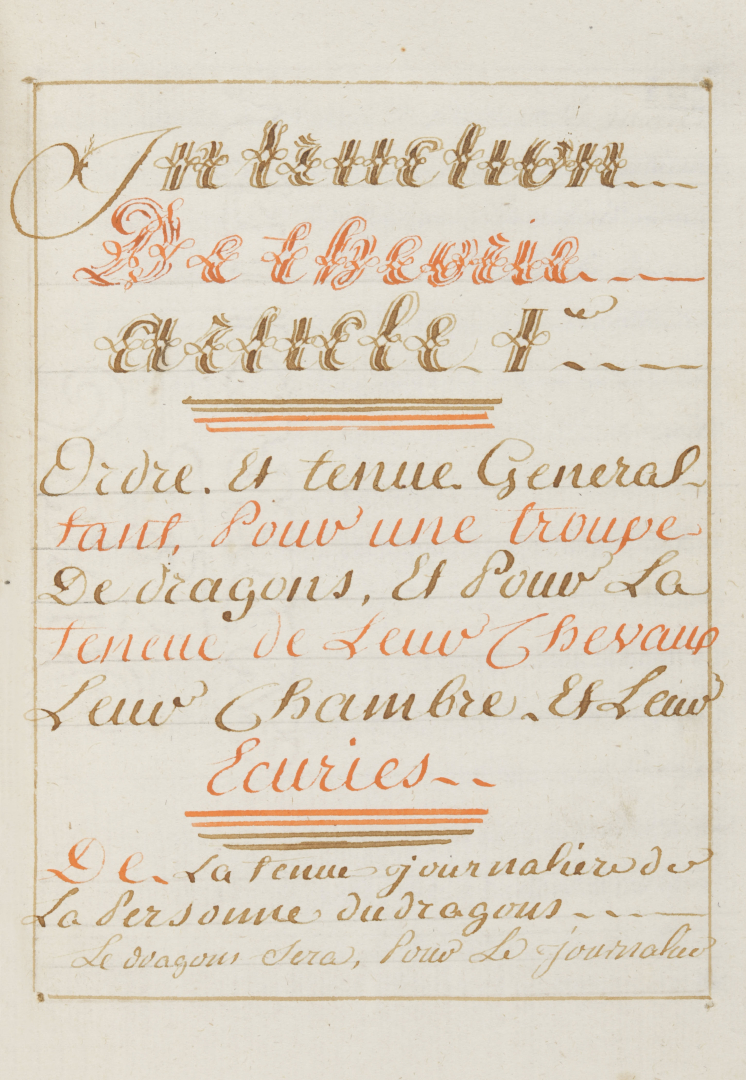 Intruction
De theorie
article 1er
Ordre. Et tenue. General
tant, Pour une troupe
De dragons, Et Pour La
teneue de Leur Chevaux
Leur Chambre. Et Leur
Ecuries
De. La tenue journaliere de
La Personne du dragons
Le dragons sera, Pour Le journalier